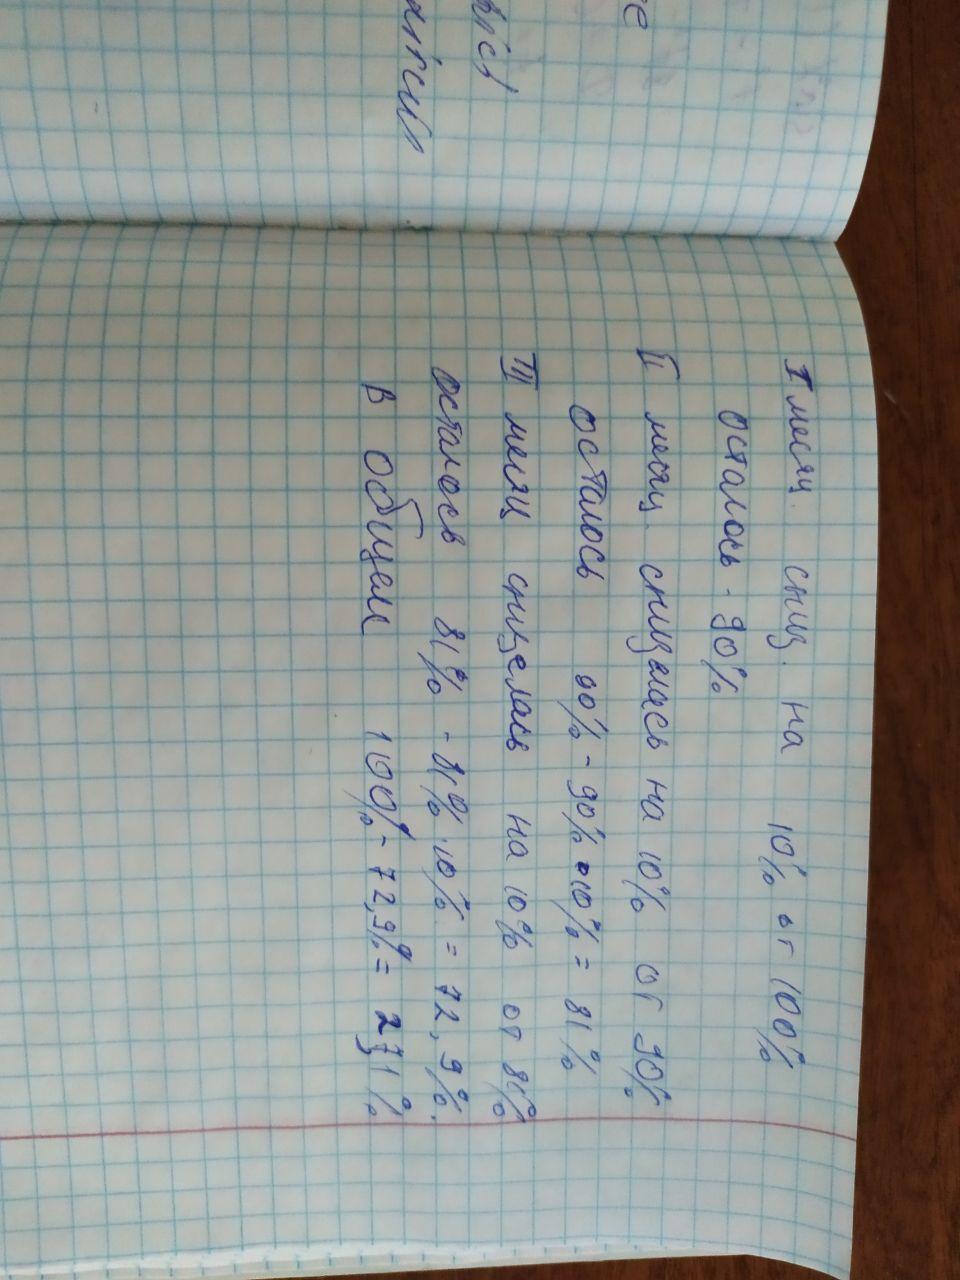 I месяц сниз. на 10% от 100%
осталось - 90%
II месяц снизилась на 10% от 90%
осталось 90% - 90% • 10% = 81%
III месяц снизелась на 10% от 81%
осталось 81% - 81% · 10% = 72,9%.
В общем 100% - 72,9% = 27,1%